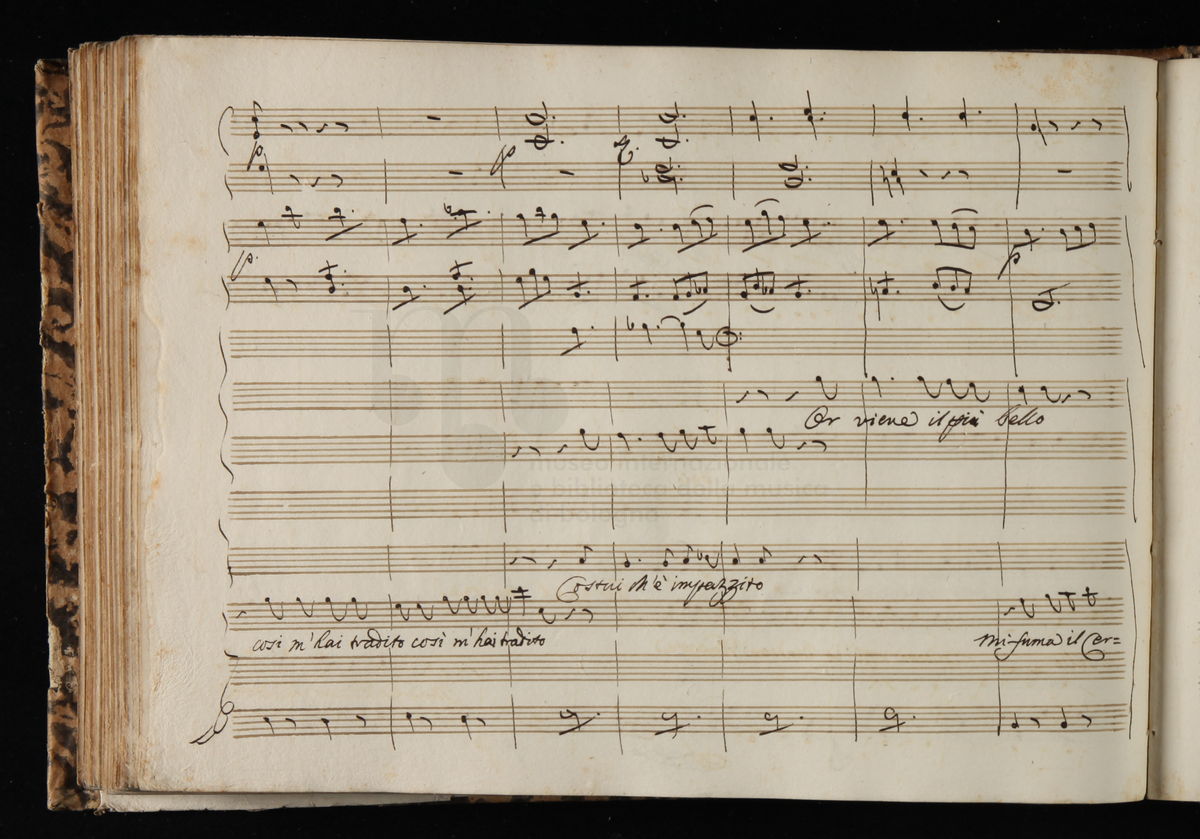 p.
p
p.
p
Or viene il più bello
museo internazionale
e biblioteca della musica
di bologna
Costui s'è impazzito
così m'hai tradito così m'hai tradito
Mi fuma il Cer=